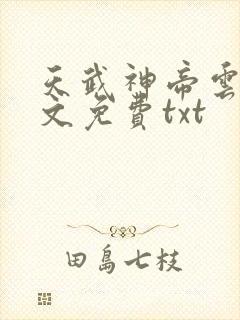 天武神帝雲
文免費txt
田島七枝